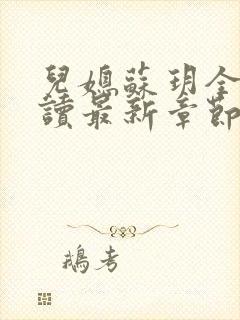 兒媳蘇玥全
讀最新章節
鵝考